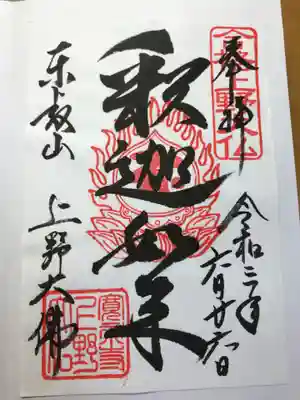 奉拝
令和三年
六月廿六日
釈迦如来
東叡山 上野大佛
寛永寺
上野
大仏